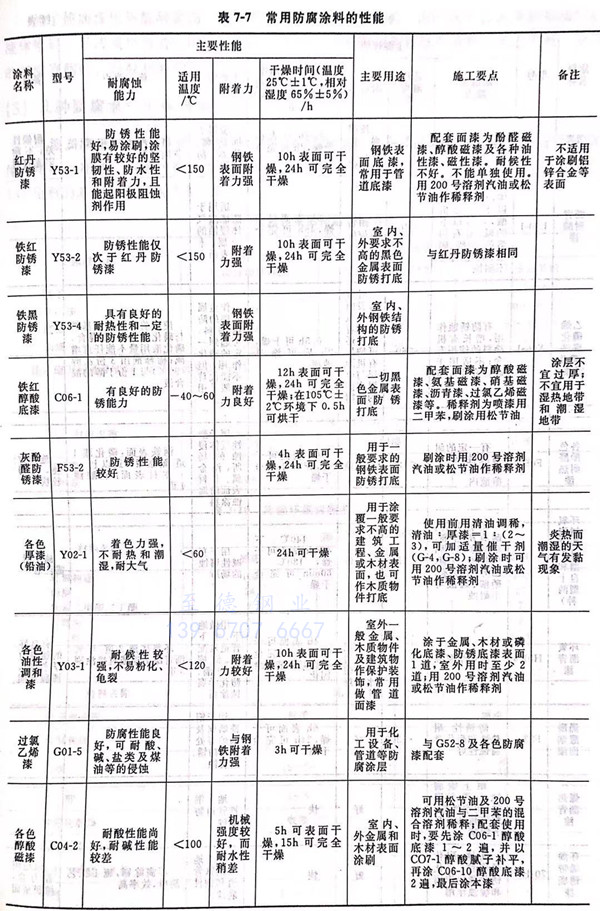 表 7-7 常用防腐涂料的性能
涂料
名称
型号
主要性能
耐腐蚀
能力
适用
温度
/℃
附着力
干燥时间(温度
25℃±1℃,相对
湿度 65%±5%)
/h
主要用途
施工要点
备注
红丹
防锈
漆
Y53-1
防锈性能
好,易涂刷,涂
膜有较好的坚
韧性、防水性
和附着力,且
能起阳极阻蚀
剂作用
<150
钢铁
表面附
着力强
10h 表面可干
燥,24h 可完全
干燥
钢铁表
面底漆,
常用于管
道底漆
配套面漆为酚醛磁
漆、醇酸磁漆及各种油
性漆、磁性漆。耐候性
不好。不能单独使用。
用 200 号溶剂汽油或松
节油作稀释剂
不适用
于涂刷铝
锌合金等
表面
铁红
防锈
漆
Y53-2
防锈性能仅
次于红丹防
锈漆
<150
附着
力强
10h 表面可干
燥,24h 可完全
干燥
室内、
外要求不
高的黑色
金属表面
防锈打底
与红丹防锈漆相同
铁黑
防锈
漆
Y53-4
具有良好的
耐热性和一定
的防锈性能
钢铁
表面附
着力强
室内、
外钢铁结
构的防锈
打底
铁红
醇酸
底漆
C06-1
有良好的防
锈能力
-40~60
附着
力良好
12h 表面可干
燥,24h 可完全
干燥;在105℃±
2℃环境下 0.5h
可烘干
一切黑
色金属表
面防锈
打底
配套面漆为醇酸磁
漆、氨基磁漆、硝基磁
漆、沥青漆、过氯乙烯磁
漆等。稀释剂为喷漆用
二甲苯,刷涂用松节油
涂层不
宜过厚;
不宜用于
湿热地带
和潮湿
地带
灰酚
醛防
锈漆
F53-2
防锈性能
较好
4h 表面可干
燥,24h 可完全
干燥
用于一
般要求的
钢铁表面
防锈打底
刷涂时用 200 号溶剂
汽油或松节油作稀释剂
各色
厚漆
(铅油)
Y02-1
着色力强,
不耐热和潮
湿,耐大气
<60
24h 可干燥
用于涂
覆一般要
求不高的
建筑工
程、金属
或木材表
面,也可
作木质物
件打底
使用前用清油调稀,
清油:厚漆=1:(2~
3),可加适量催干剂
(G-4,G-8);刷涂时可
用 200 号溶剂汽油或松
节油作稀释剂
炎热而
潮湿的天
气有发黏
现象
各色
油性
调和
漆
Y03-1
耐候性较
强,不易粉化、
龟裂
<120
附着
力较好
10h 表面可干
燥,24h 可完全
干燥
室外一
般金属、
木质物件
及建筑物
作保护装
饰,常用
做管道
面漆
涂于金属、木材或磷
化底漆、防锈底漆表面
1 道,室外用时至少 2
道;用 200 号溶剂汽油
或松节油作稀释剂
过氯
乙烯
漆
G01-5
防腐性能良
好,可耐酸、
碱、盐类及煤
油等的侵蚀
与钢
铁附着
力强
3h 可干燥
用于化
工设备、
管道等防
腐涂层
与 G52-8 及各色防腐
漆配套
各色
醇酸
磁漆
C04-2
耐酸性能尚
好,耐碱性能
较差
<100
机械
强度较
好,而
耐水性
稍差
5h 可表面干
燥,15h 可完全
干燥
室内、
外金属和
木材表面
涂刷
可用松节油及 200 号
溶剂汽油与二甲苯的混
合溶剂稀释;配套使用
时,要先涂 C06-1 醇酸
底漆 1～2 遍,并以
CO7-1 醇酸腻子补平,
再涂 C06-10 醇酸底漆
2 遍,最后涂本漆
至德钢业
139 6707 6667